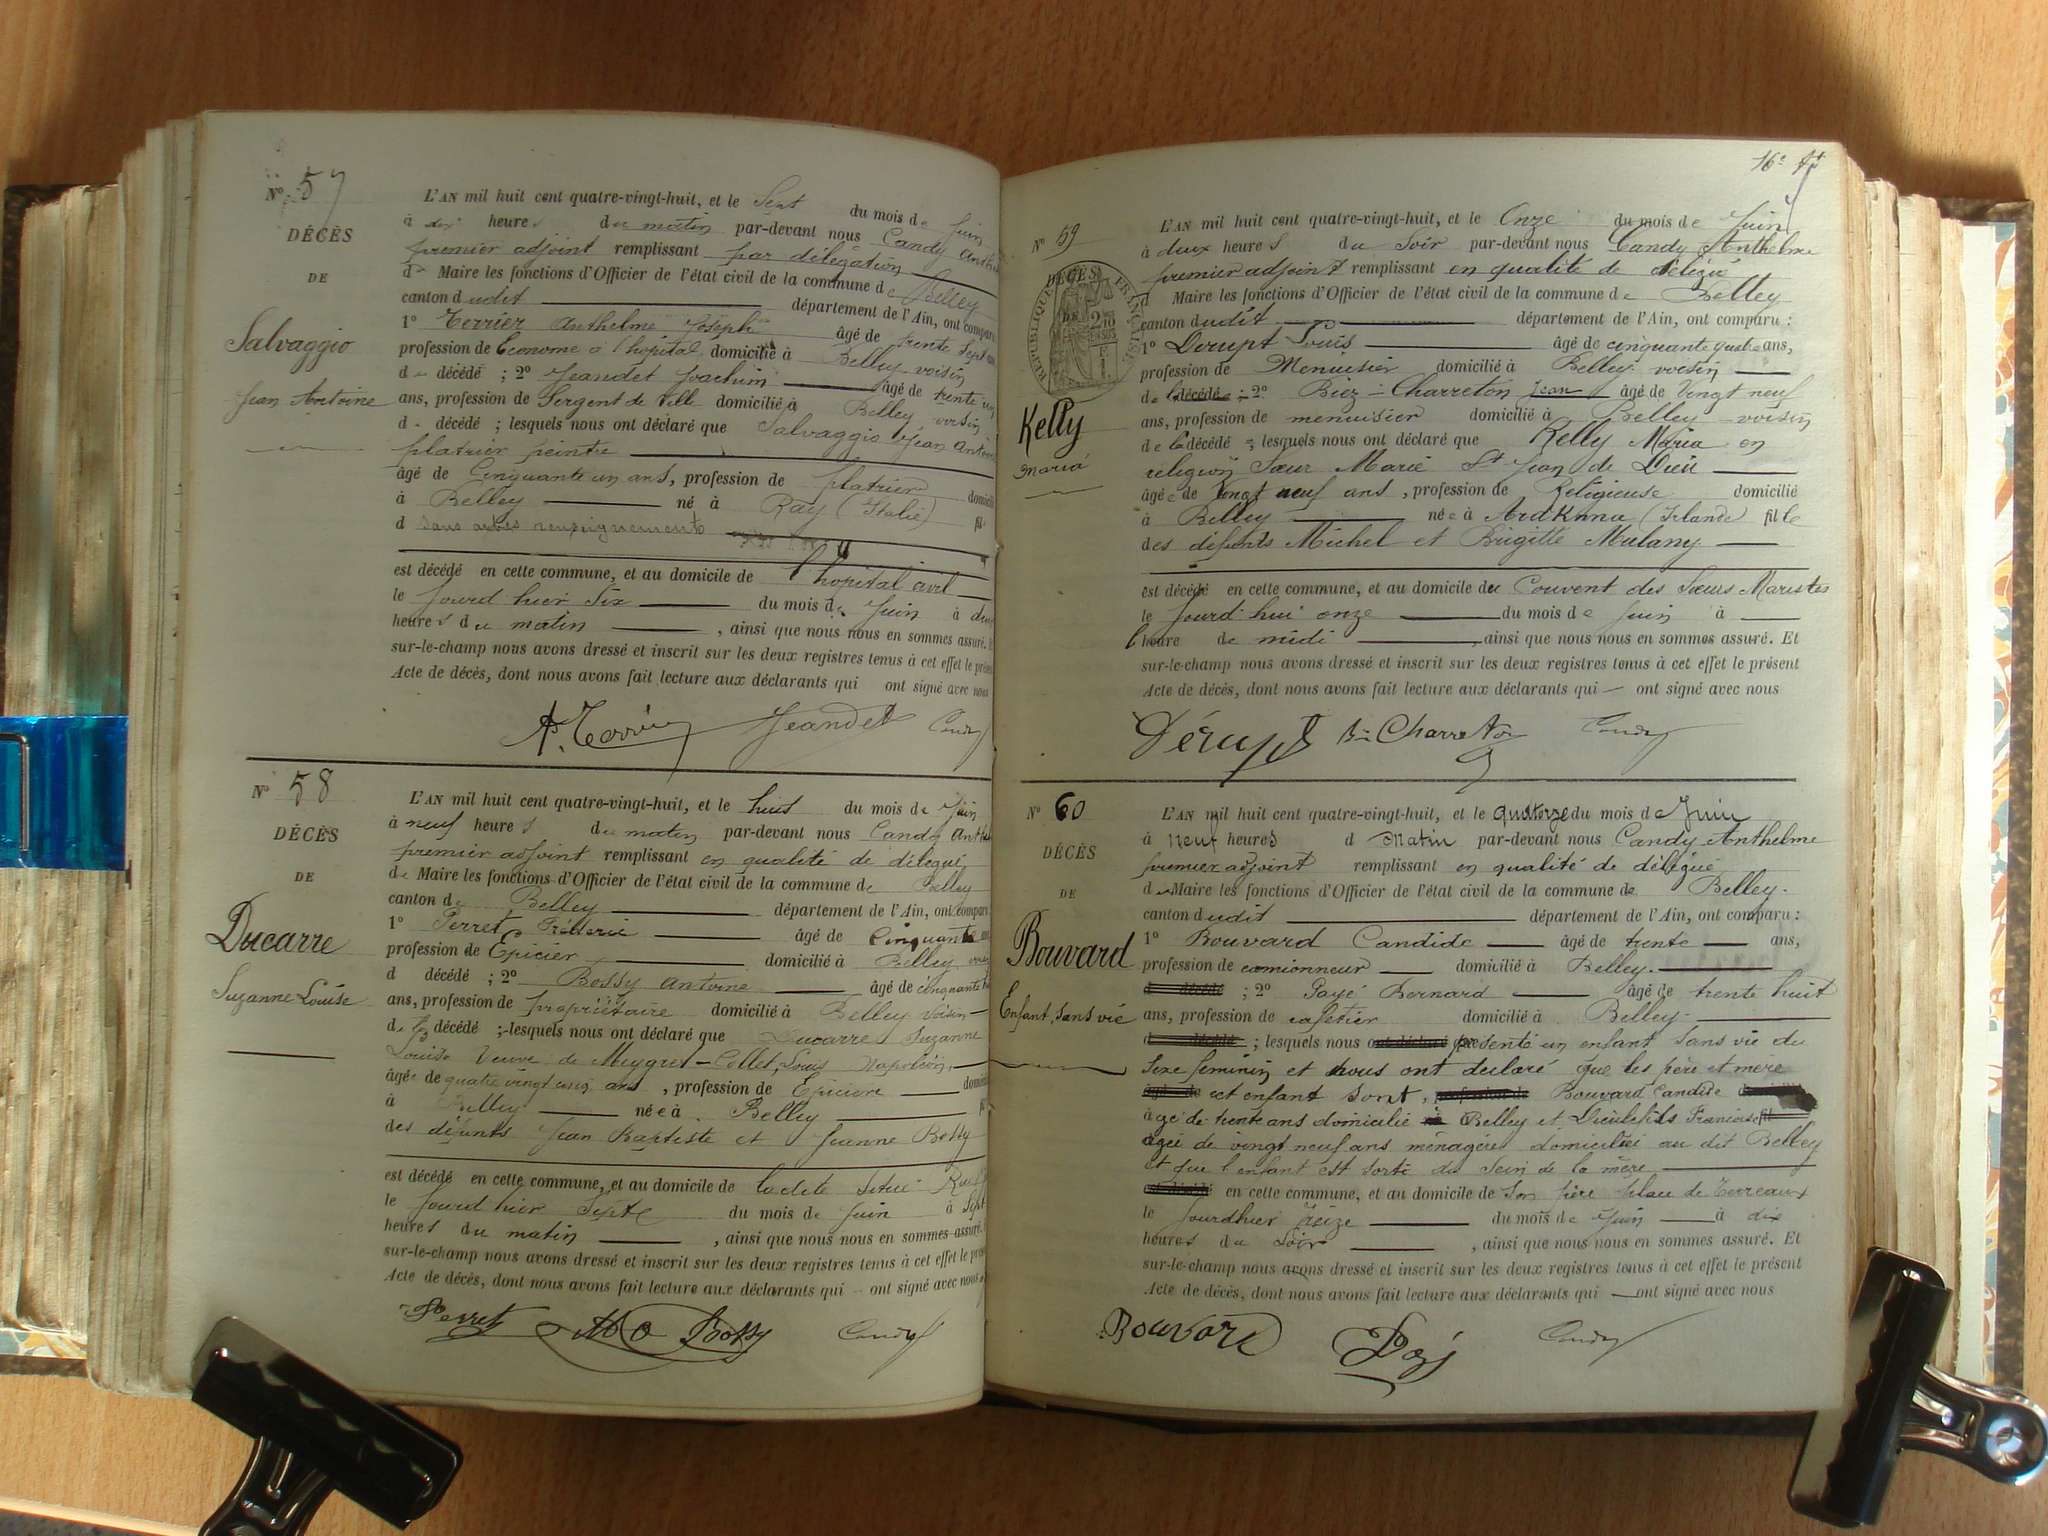 N° 57
DÉCÈS
DE
Salvaggio
Jean Antoine
L'AN mil huit cent quatre-vingt-huit, et le Sept du mois de Juin
à dix heures du matin par-devant nous Candy
premier adjoint remplissant par délégation
de Maire les fonctions d'Officier de l'état civil de la commune de Belley
canton dudit département de l'Ain, ont comparu
1° Terrier Anthelme Joseph âgé de trente sept
profession de Econome à l'hôpital domicilié à Belley voisin
d décédé ; 2° Jeandet Joachim âgé de trente
ans, profession de Sergent de Ville domicilié à Belley voisin
d décédé ; lesquels nous ont déclaré que Salvaggio Jean
platrier peintre
âgé de Cinquante un ans, profession de platrier
à Belley né à Ray (Italie) fil
d Sans autres renseignements
est décédé en cette commune, et au domicile de l'hopital civil
le Jourd'hier Six du mois de Juin à
heures du matin , ainsi que nous nous en sommes assuré.
sur-le-champ nous avons dressé et inscrit sur les deux registres tenus à cet effet le présent
Acte de décès, dont nous avons fait lecture aux déclarants qui ont signé avec nous
Jeandet Candy
N° 58
DÉCÈS
DE
Ducarre
Suzanne Louise
L'AN mil huit cent quatre-vingt-huit, et le huit du mois de Juin
à neuf heures du matin par-devant nous Candy
premier adjoint remplissant en qualité de délégué
de Maire les fonctions d'Officier de l'état civil de la commune de Belley
canton de Belley département de l'Ain, ont comparu
1° Perret Fréderic âgé de Cinquante
profession de Epicier domicilié à Belley
d décédé ; 2° Bossy Antoine âgé de cinquante
ans, profession de propriétaire domicilié à Belley Voisin
de la décédé ; lesquels nous ont déclaré que Ducarre Suzanne
Louise Veuve de Meygret-Collet, Louis Napoléon,
âgée de quatre vingt ans , profession de Epiciere
à Belley née à Belley
des défunts Jean Baptiste et Jeanne Bossy
est décédé en cette commune, et au domicile de
le Jourd'hier Sept du mois de Juin à Sept
heures du matin , ainsi que nous nous en sommes assuré.
sur-le-champ nous avons dressé et inscrit sur les deux registres tenus à cet effet le
Acte de décès, dont nous avons fait lecture aux déclarants qui ont signé avec nous
Perret Bossy Candy
16e
N° 59
DÉCÈS
RÉPUBLIQUE FRANÇAISE
Kelly
Maria
L'AN mil huit cent quatre-vingt-huit, et le Onze du mois de Juin
à deux heures du Soir par-devant nous Candy Anthelme
premier adjoint remplissant en qualité de délégué
d Maire les fonctions d'Officier de l'état civil de la commune de Belley
canton dudit département de l'Ain, ont comparu :
1° Derupt Louis âgé de cinquante quatre ans,
profession de Menuisier domicilié à Belley voisin
de la décédée ; 2° Biez-Charreton Jean âgé de Vingt neuf
ans, profession de menuisier domicilié à Belley voisin
de la décédé ; lesquels nous ont déclaré que Kelly Maria en
religion Sœur Marie St Jean de Dieu
âgée de Vingt neuf ans , profession de Religieuse domicilié
à Belley née à Ardknna (Irlande) fille
des défunts Michel et Brigitte Mulany
est décédé en cette commune, et au domicile du Couvent des Sœurs Maristes
le Jourd'hui onze du mois de Juin à
l'heure de midi , ainsi que nous nous en sommes assuré. Et
sur-le-champ nous avons dressé et inscrit sur les deux registres tenus à cet effet le présent
Acte de décès, dont nous avons fait lecture aux déclarants qui ont signé avec nous
Dérupt Bz Charreton Candy
N° 60
DÉCÈS
DE
Bouvard
Enfant sans vie
L'AN mil huit cent quatre-vingt-huit, et le quatorze du mois de Juin
à Neuf heures d Matin par-devant nous Candy Anthelme
premier adjoint remplissant en qualité de délégué
de Maire les fonctions d'Officier de l'état civil de la commune de Belley
canton dudit département de l'Ain, ont comparu :
1° Bouvard Candide âgé de trente ans,
profession de camionneur domicilié à Belley
; 2° Payé Bernard âgé de trente huit
ans, profession de cafetier domicilié à Belley
; lesquels nous présenté un enfant sans vie du
Sexe féminin et nous ont déclaré que les père et mère
cet enfant sont, Bouvard Candide
âgé de trente ans domicilié à Belley et Dieulefils Francoise
âgée de vingt neuf ans ménagère domiciliée au dit Belley
et que l'enfant est sorti du Sein de la mère
en cette commune, et au domicile de Son père place de Terreaux
le Jourdhier treize du mois de Juin à dix
heures du Soir , ainsi que nous nous en sommes assuré. Et
sur-le-champ nous avons dressé et inscrit sur les deux registres tenus à cet effet le présent
Acte de décès, dont nous avons fait lecture aux déclarants qui ont signé avec nous
Bouvard Payé Candy